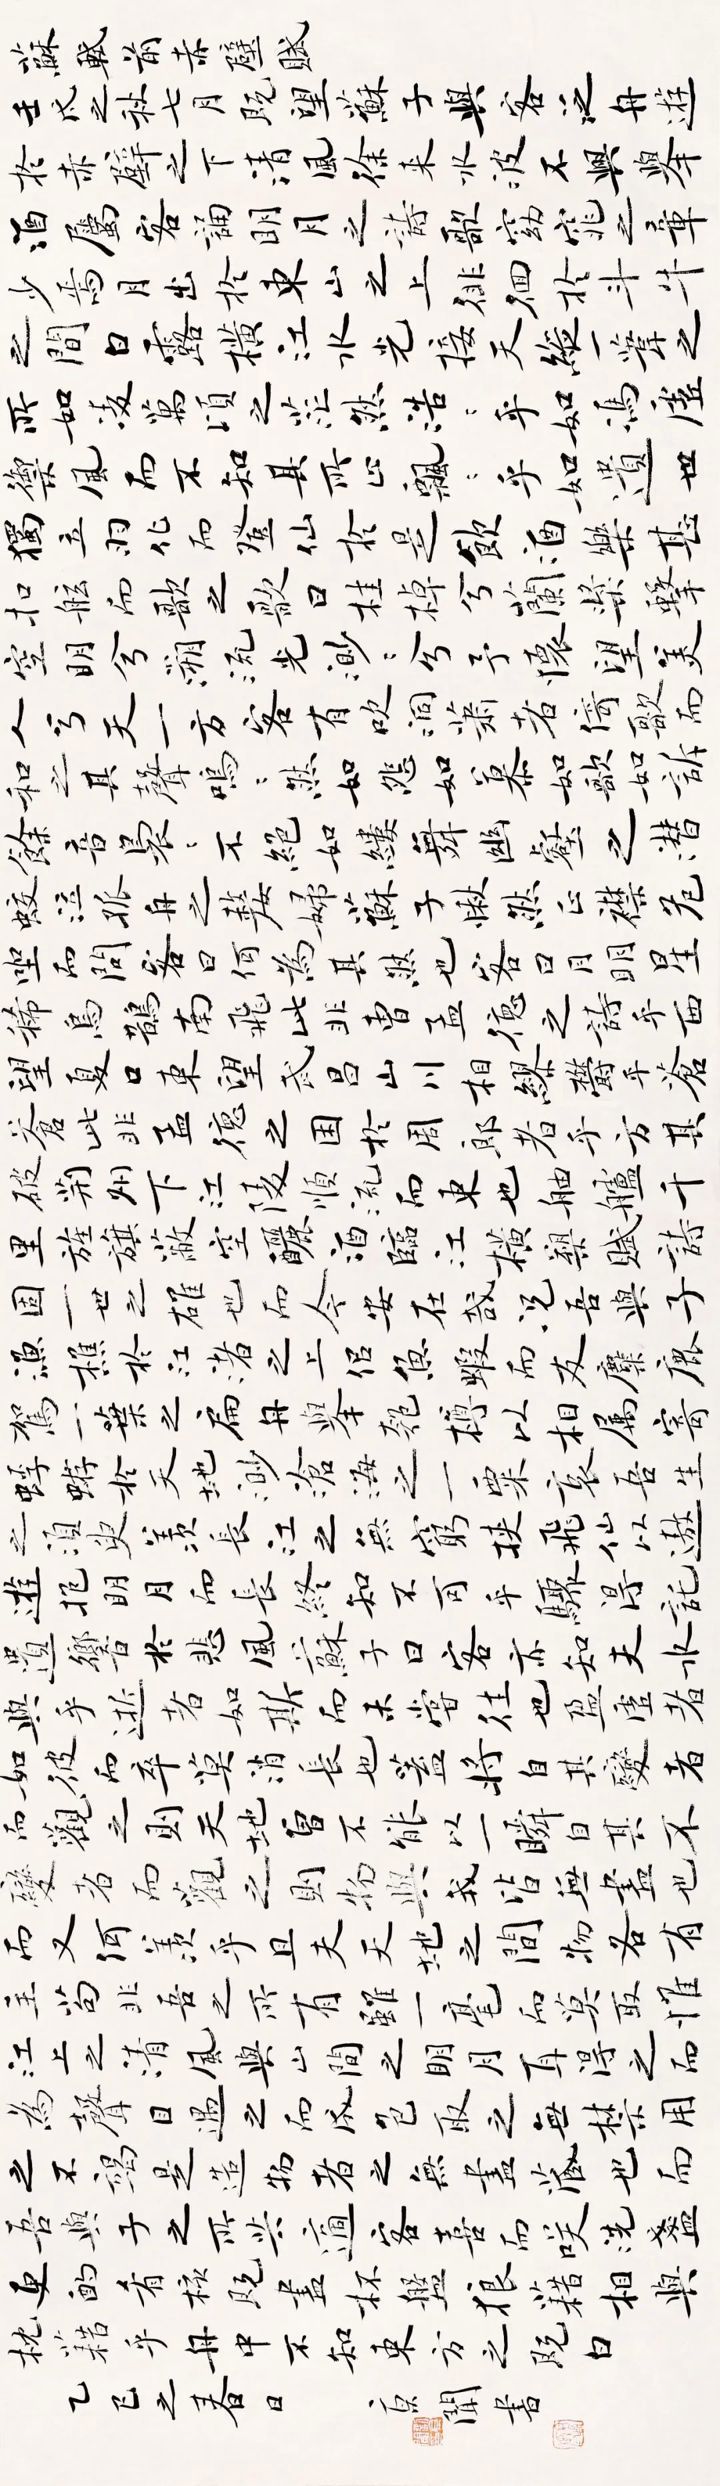 蘇軾前赤壁賦
壬戌之秋七月既望蘇子與客泛舟遊
於赤壁之下清風徐來水波不興舉
酒屬客誦明月之詩歌窈窕之章
少焉月出於東山之上徘徊於斗牛
之間白露橫江水光接天縱一葦之
所如凌萬頃之茫然浩〻乎如馮虛
御風而不知其所止飄〻乎如遺世
獨立羽化而登仙於是飲酒樂甚
扣舷而歌之歌曰桂棹兮蘭槳擊
空明兮溯流光渺〻兮予懷望美
人兮天一方客有吹洞簫者倚歌而
和之其聲嗚〻然如怨如慕如歌如訴
餘音裊〻不絕如縷舞幽壑之潛
蛟泣孤舟之嫠婦蘇子愀然正襟危
坐而問客曰何為其然也客曰月明星
稀烏鵲南飛此非曹孟德之詩乎西
望夏口東望武昌山川相繆鬱乎蒼
蒼此非孟德之困於周郎者乎方其
破荊州下江陵順流而東也舳艫千
里旌旗蔽空釃酒臨江橫槊賦詩
固一世之雄也而今安在哉況吾與子
漁樵於江渚之上侶魚蝦而友麋鹿
駕一葉之扁舟舉匏樽以相屬寄
蜉蝣於天地渺滄海之一粟哀吾生
之須臾羨長江之無窮挾飛仙以遨
遊抱明月而長終知不可乎驟得託
遺響於悲風蘇子曰客亦知夫水
與乎逝者如斯而未嘗往也盈虛者
如彼而卒莫消長也蓋將自其變者
而觀之則天地曾不能以一瞬自其不
變者而觀之則物與我皆無盡也
而又何羨乎且夫天地之間物各有
主苟非吾之所有雖一毫而莫取惟
江上之清風與山間之明月耳得之而
為聲目遇之而成色取之無禁用
之不竭是造物者之無盡藏也而
吾與子之所共適客喜而笑洗盞
更酌肴核既盡杯盤狼藉相與
枕藉乎舟中不知東方之既白
乙巳之春日 聞書